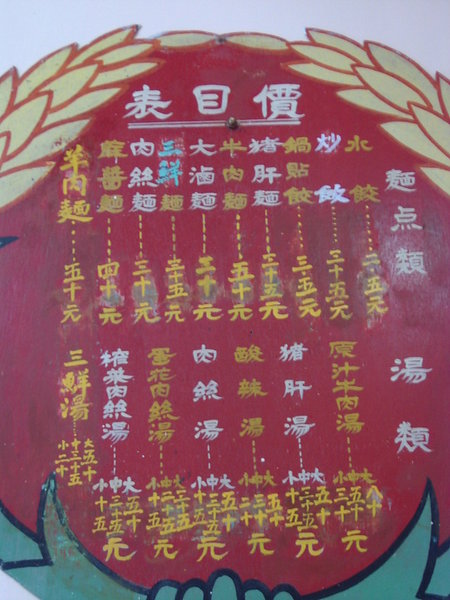 價目表
麵点類
水餃……二.五元
炒飯……三十五元
鍋貼餃……三.五元
猪肝麵……三十五元
牛肉麵……五十元
大滷麵……三十元
三鮮麵……三十五元
肉絲麵……三十元
醡醬麵……四十元
羊肉麵……五十元
湯類
原汁牛肉湯……大八十中五十小三十元
猪肝湯……大五十中三十五小十五元
酸辣湯……大五十中三十小二十元
肉絲湯……大五十中三十小十五元
蛋花肉絲湯……大三十五中二十五小十五元
榨菜肉絲湯……大五十中三十五小十五元
三鮮湯……大五十中三十五小二十